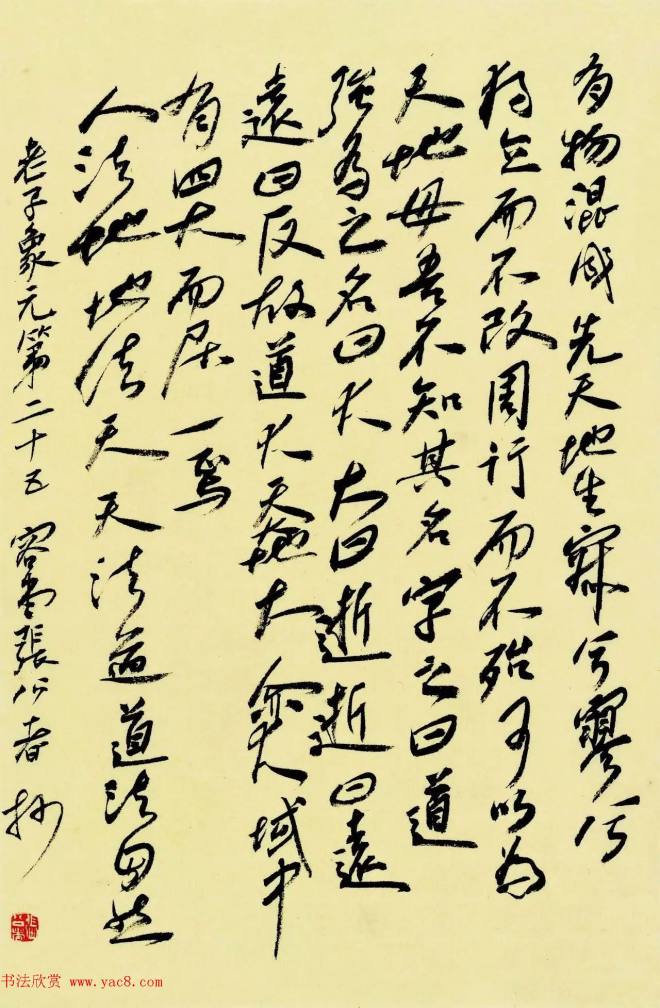 有物混成先天地生寂兮寥兮
独立而不改周行而不殆可以为
天地母吾不知其名字之曰道
強為之名曰大大曰逝逝曰遠
遠曰反故道大天地大亦大域中
有四大而居一焉
人法地地法天天法道道法自然
老子象元第二十五 容堂張公者抄
书法欣赏 www.yac8.com